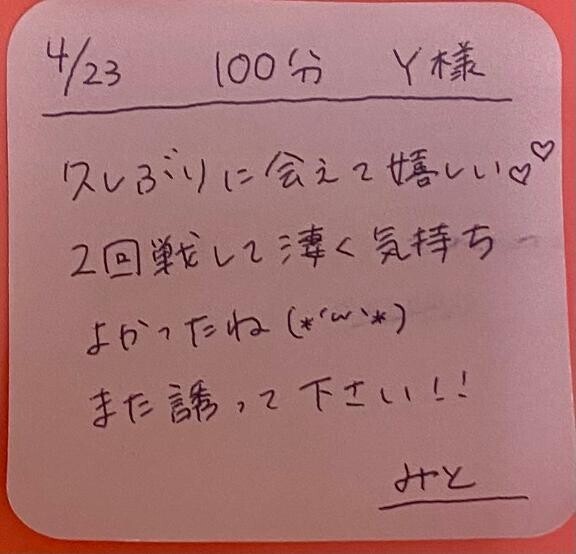 4/23 100分 Y様
久しぶりに会えて嬉しい♡♡
2回戦して凄く気持ち
よかったね(*´ω`*)
また誘って下さい!!
みと